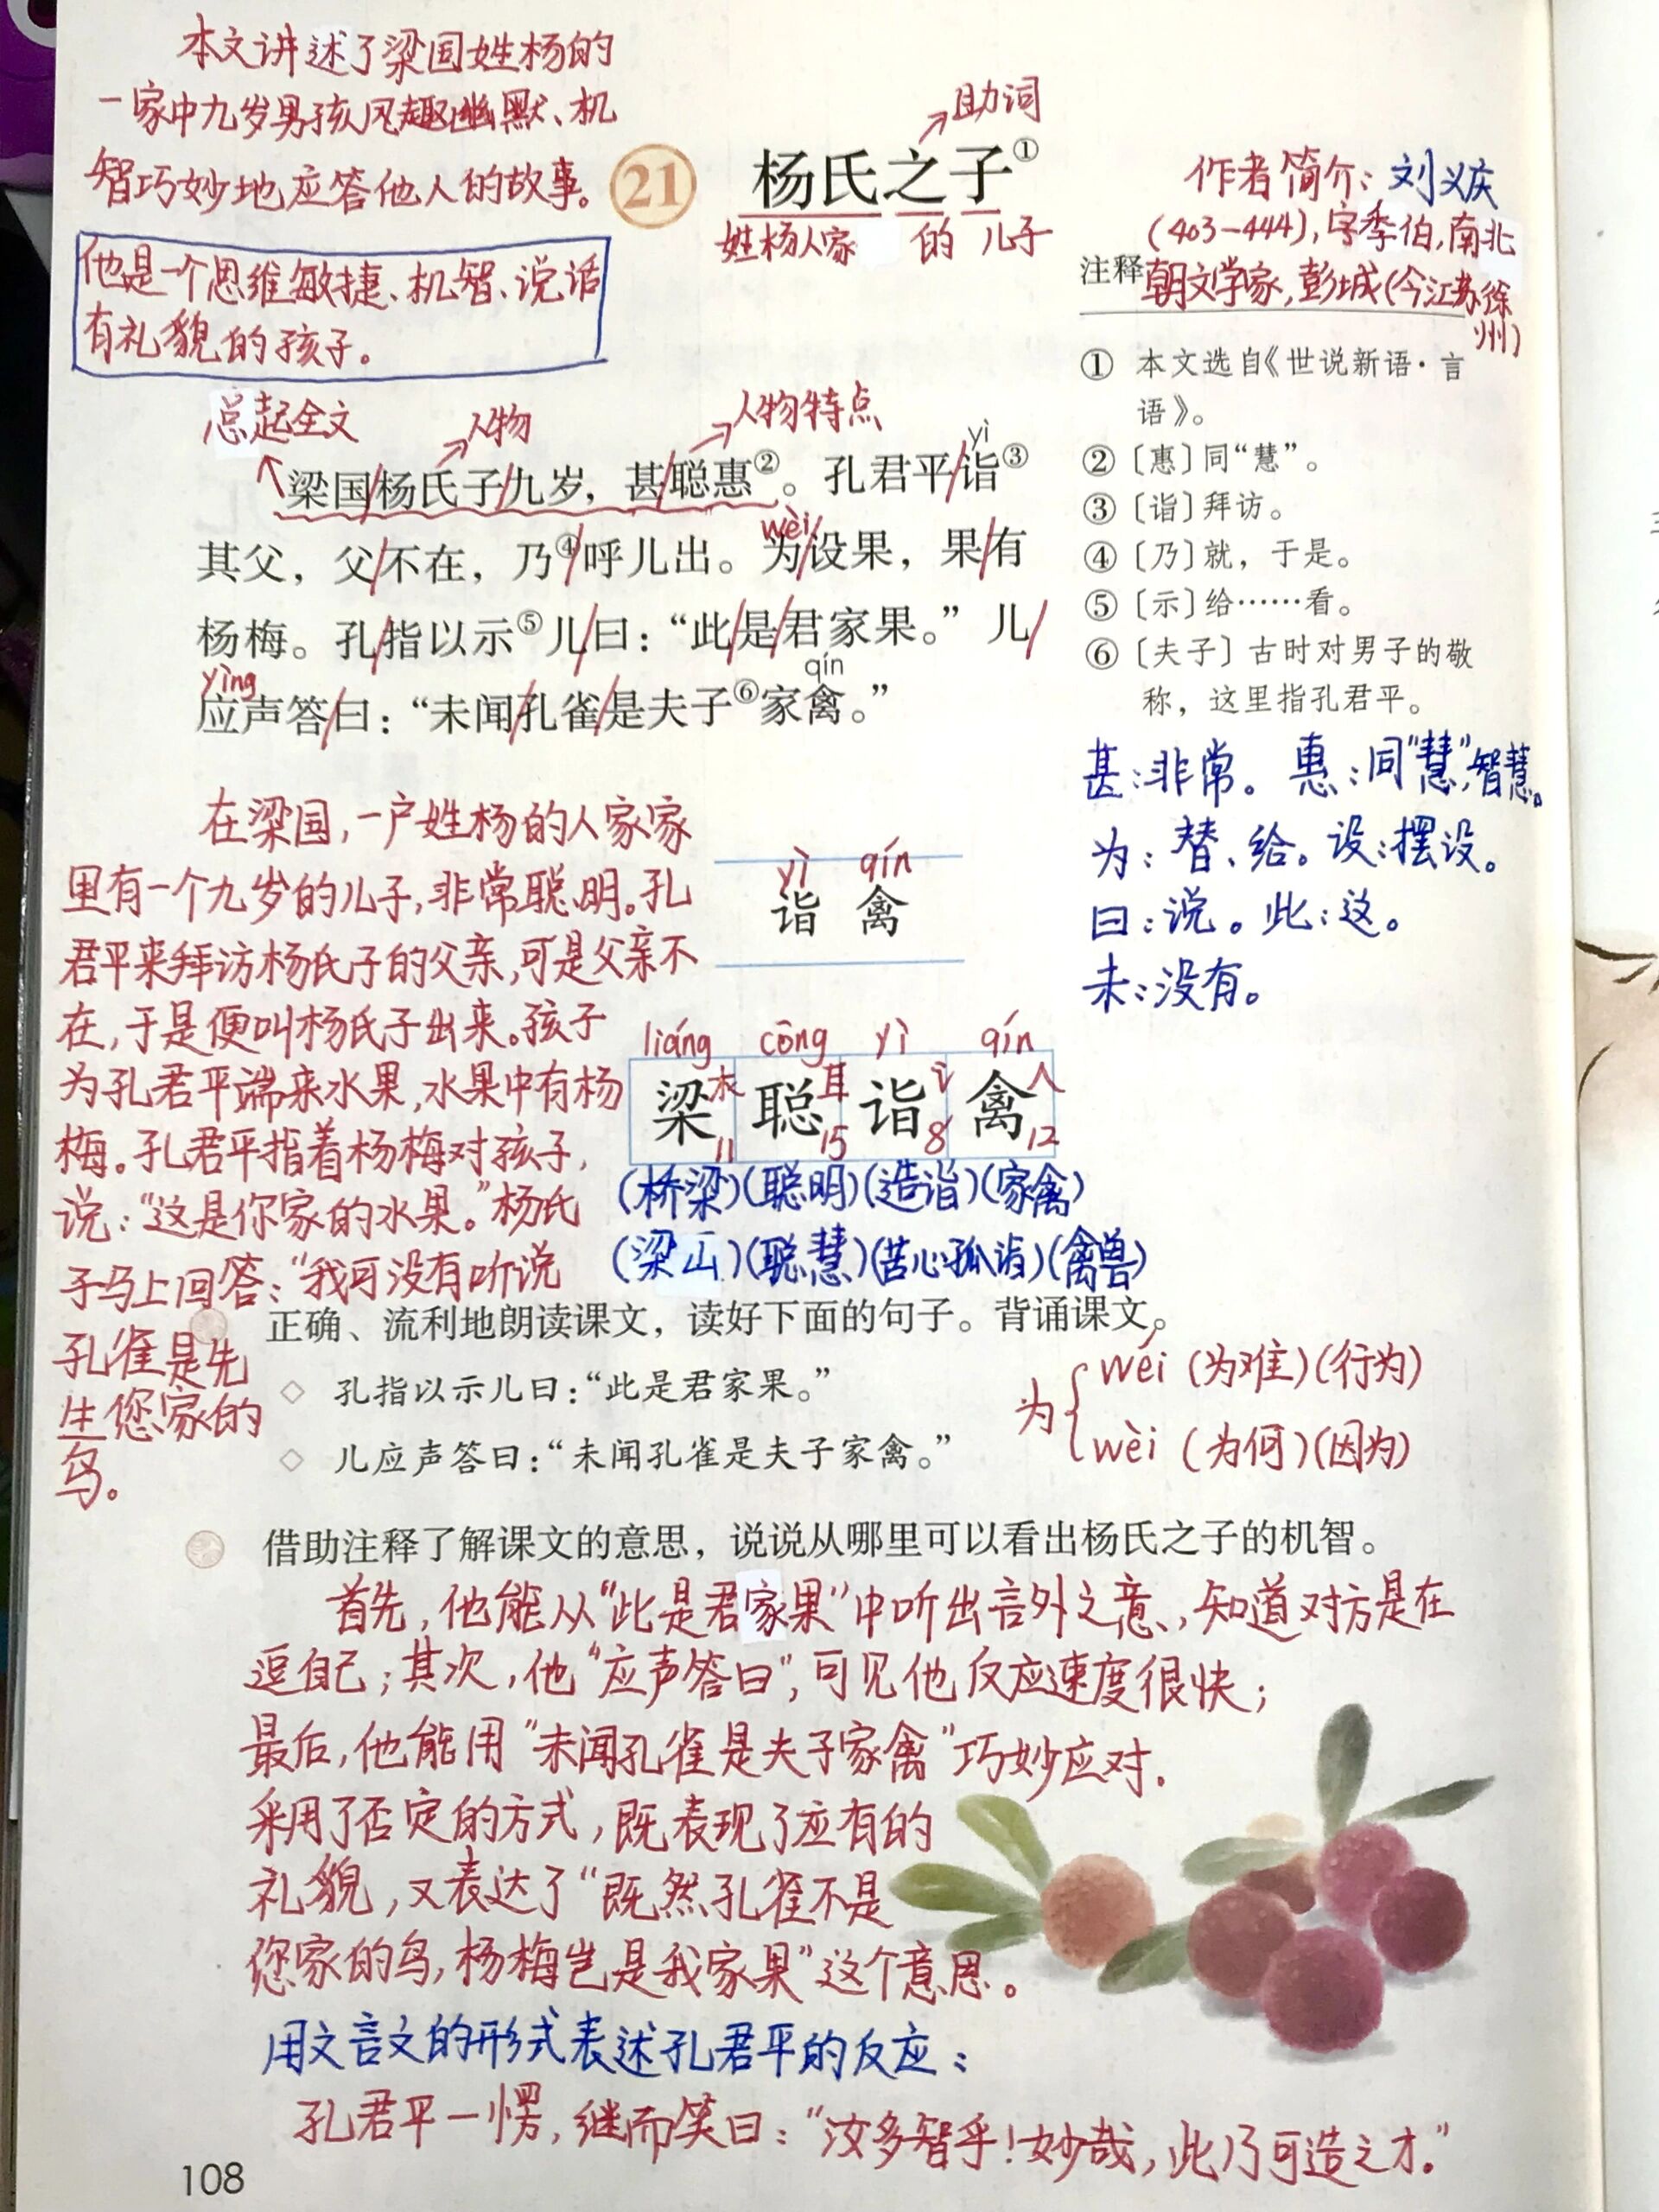 本文讲述了梁国姓杨的
一家中九岁男孩风趣幽默、机
智巧妙地应答他人的故事。
他是一个思维敏捷、机智、说话
有礼貌的孩子。
助词
21 杨氏之子①
姓杨人家 的 儿子
作者简介：刘义庆
(403-444)，字季伯，南北
注释
朝文学家，彭城(今江苏徐
州)
① 本文选自《世说新语·言
语》。
②〔惠〕同“慧”。
③〔诣〕拜访。
④〔乃〕就，于是。
⑤〔示〕给……看。
⑥〔夫子〕古时对男子的敬
称，这里指孔君平。
甚：非常。惠：同“慧”，智慧。
为：替、给。设：摆设。
曰：说。此：这。
未：没有。
总起全文 人物 人物特点
yì
梁国/杨氏子/九岁，甚/聪惠②。孔君平/诣③
wèi
其父，父/不在，乃④/呼儿出。为/设果，果/有
杨梅。孔/指以示⑤儿/曰：“此/是/君家果。”儿/
yìng qín
应声答/曰：“未闻/孔雀/是夫子⑥家禽。”
在梁国，一户姓杨的人家家
里有一个九岁的儿子，非常聪明。孔
君平来拜访杨氏子的父亲，可是父亲不
在，于是便叫杨氏子出来。孩子
为孔君平端来水果，水果中有杨
梅。孔君平指着杨梅对孩子，
说：“这是你家的水果。”杨氏
子马上回答：“我可没有听说
孔雀是先
生您家的
鸟。
yì qín
诣 禽
liáng cōng yì qín
梁 木 11 聪 耳 15 诣 讠 8 禽 人 12
(桥梁)(聪明)(造诣)(家禽)
(梁山)(聪慧)(苦心孤诣)(禽兽)
正确、流利地朗读课文，读好下面的句子。背诵课文。
◇ 孔指以示儿曰：“此是君家果。”
◇ 儿应声答曰：“未闻孔雀是夫子家禽。”
为
wéi (为难)(行为)
wèi (为何)(因为)
借助注释了解课文的意思，说说从哪里可以看出杨氏之子的机智。
首先，他能从“此是君家果”中听出言外之意，知道对方是在
逗自己；其次，他“应声答曰”，可见他反应速度很快；
最后，他能用“未闻孔雀是夫子家禽”巧妙应对.
采用了否定的方式，既表现了应有的
礼貌，又表达了“既然孔雀不是
您家的鸟，杨梅岂是我家果”这个意思。
用文言文的形式表述孔君平的反应：
孔君平一愣，继而笑曰：“汝多智乎！妙哉，此乃可造之才。”
108